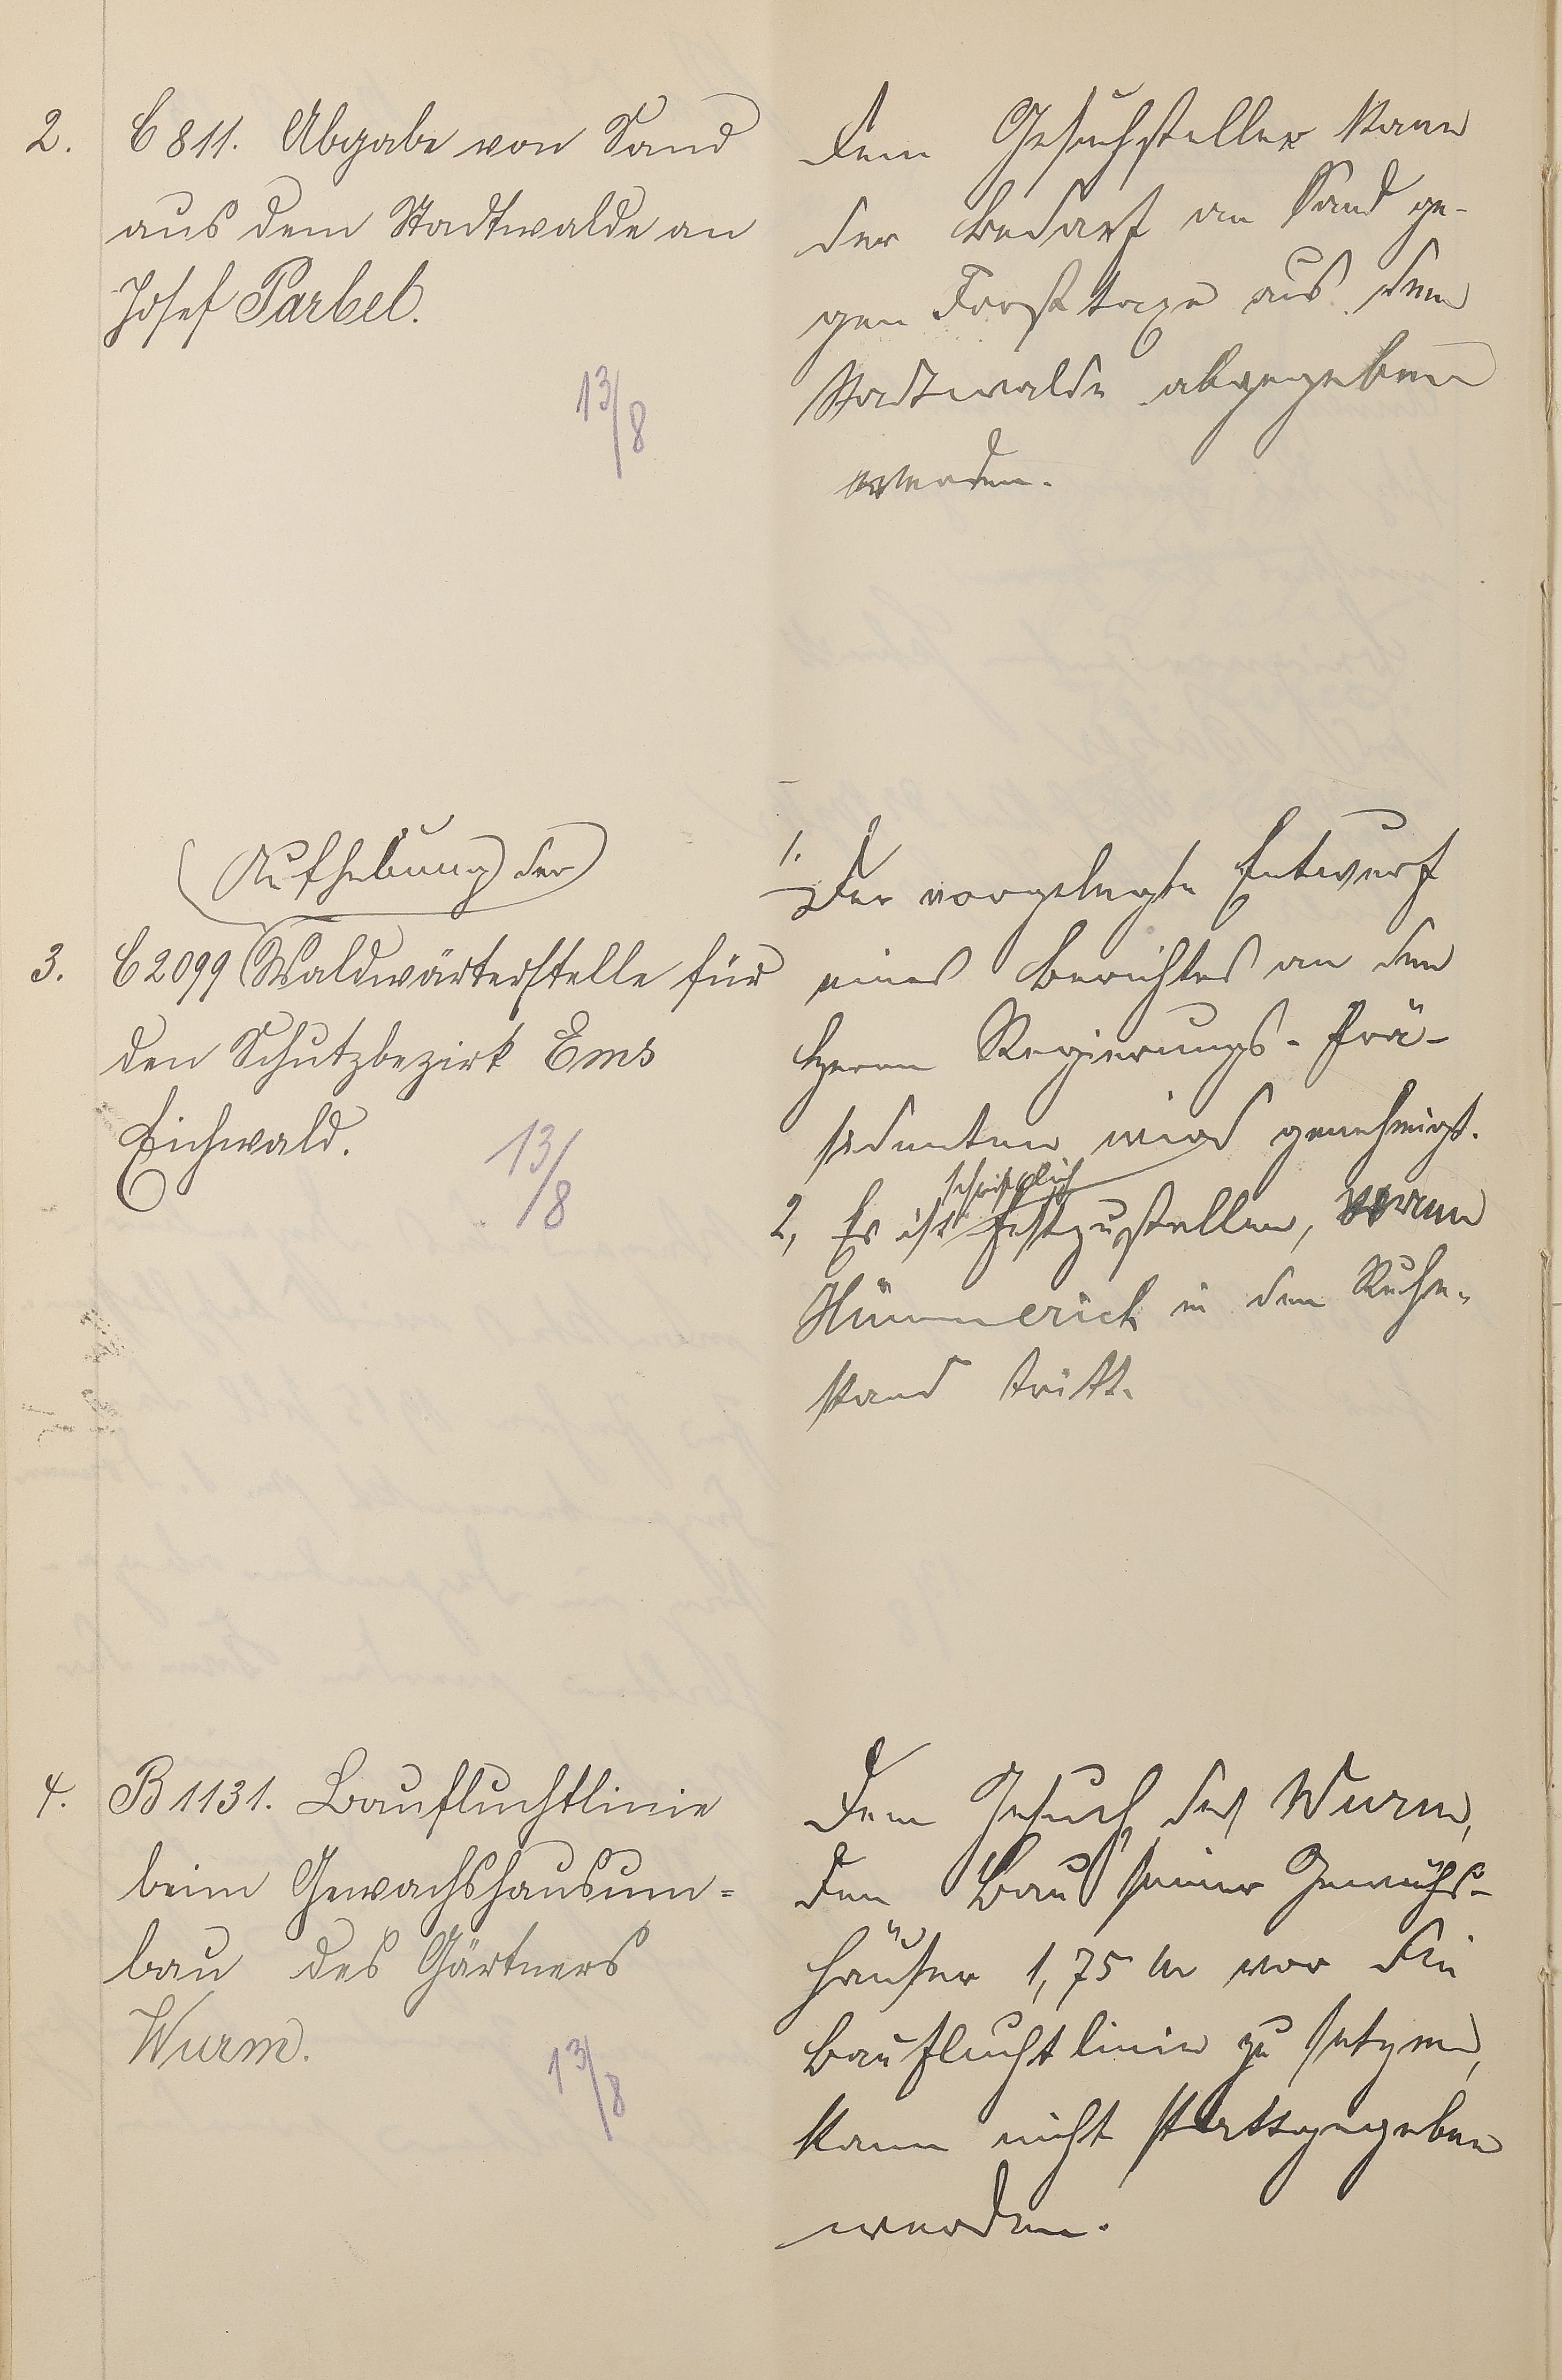 2.
C 811. Abgabe von Sand
aus dem Stadtwalde an
Josef Parbel.
13/8
Dem Gesuchsteller kann
der Bedarf an Sand ge-
gen Forsttaxe aus dem
Stadtwalde abgegeben
werden.
(Aufhebung der)
3.
C 2099 (Waldwärterstelle für
den Schutzbezirk Ems
Eichwald.
13/8
1.
Der vorgelegte Entwurf
eines Berichtes an den
Herrn Regierungs-Prä-
sidenten wird genehmigt.
schriftlich
2, Es ist festzustellen, wann
Hümmerich in den Ruhe-
stand tritt.
4.
B 1131. Baufluchtlinie
beim Gewachshausum=
bau des Gärtners
Wurm.
13/8
Dem Gesuch des Wurm,
den Bau seiner Gewächs-
häuser 1,75 m vor die
Baufluchtlinie zu setzen,
kann nicht stattgegeben
werden.